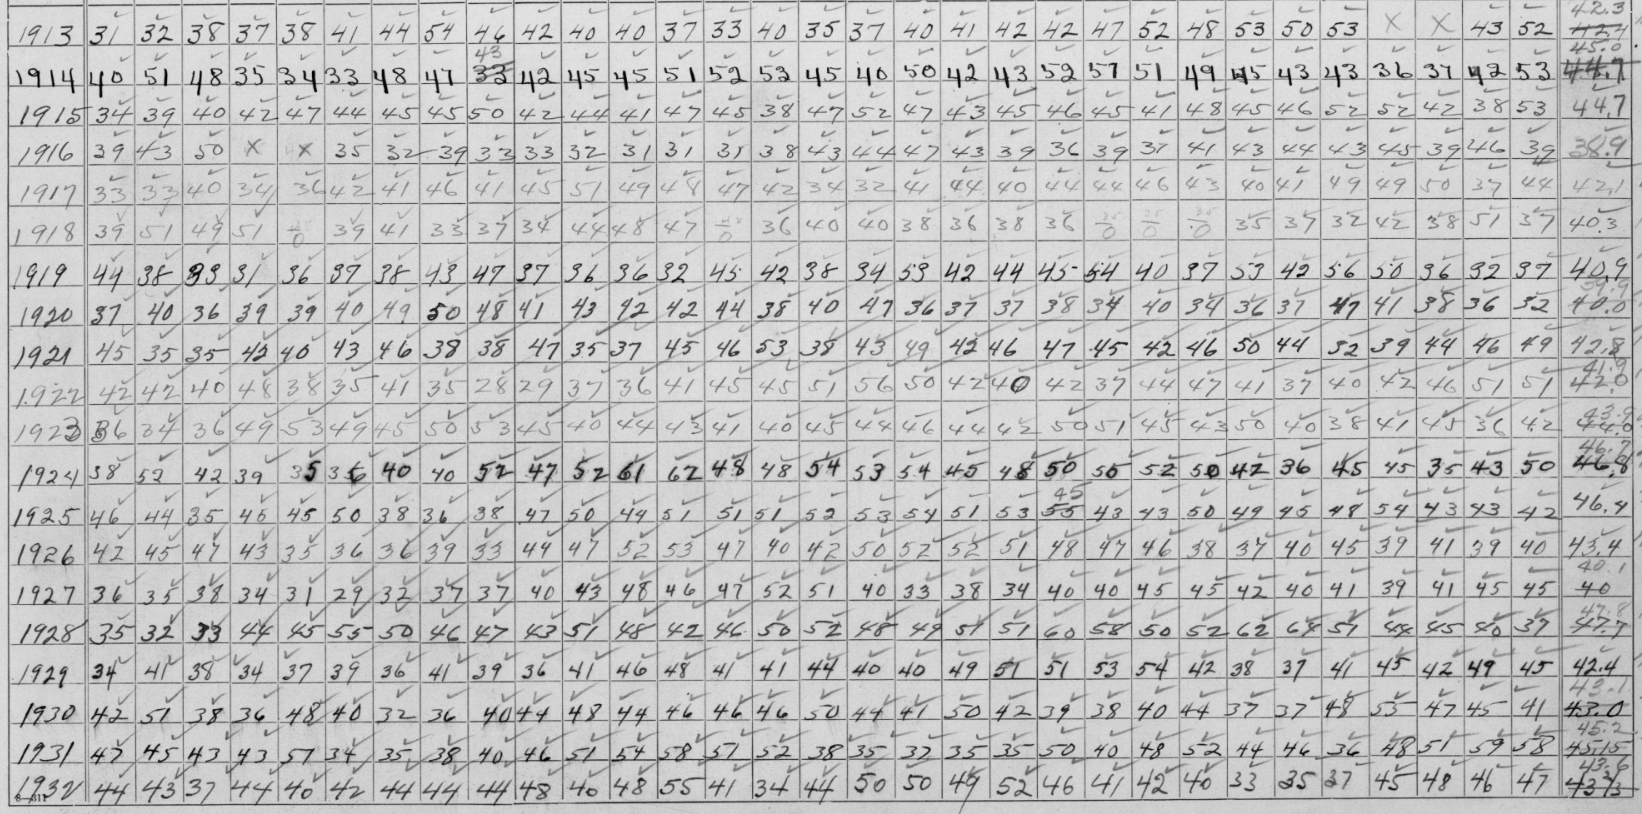 1913 31 32 38 37 38 41 44 54 46 42 40 40 37 33 40 35 37 40 41 42 42 47 52 48 53 50 53 X X 43 52 42.3 42.4
1914 40 51 48 35 34 33 48 47 43 33 42 45 45 51 52 52 45 40 50 42 43 52 57 51 49 45 43 43 36 37 42 53 45.0 44.7
1915 34 39 40 42 47 44 45 45 50 42 44 41 47 45 38 47 52 47 43 45 46 45 41 48 45 46 52 52 42 38 53 44.7
1916 39 43 50 X X 35 32 39 33 33 32 31 31 31 38 43 44 47 43 39 36 39 37 41 43 44 43 45 39 46 39 38.9
1917 33 33 40 34 36 42 41 46 41 45 51 49 48 47 42 34 32 41 44 40 44 44 46 43 40 41 49 49 50 37 44 42.1
1918 39 51 49 51 0 39 41 33 37 34 44 48 47 0 36 40 40 38 36 38 36 0 0 0 35 37 32 42 38 51 37 40.3
1919 44 38 33 31 36 37 38 43 47 37 36 36 32 45 42 38 34 53 42 44 45 54 40 37 53 42 56 50 36 32 37 40.9
1920 37 40 36 39 39 40 49 50 48 41 43 42 42 44 38 40 47 36 37 37 38 34 40 34 36 37 47 41 38 36 32 39.9 40.0
1921 45 35 35 42 40 43 46 38 38 47 35 37 45 46 53 38 43 49 42 46 47 45 42 46 50 44 52 39 44 46 49 42.8
1922 42 42 40 48 38 35 41 35 28 29 37 36 41 45 45 51 56 50 42 40 42 37 44 47 41 37 40 42 46 51 51 41.9 42.0
1923 36 34 36 49 53 49 45 50 53 45 40 44 43 41 40 45 44 46 44 42 50 51 45 43 50 40 38 41 45 36 42 43.9 44.0
1924 38 52 42 39 35 36 40 40 52 47 52 61 62 48 48 54 53 54 45 48 50 50 52 50 42 36 45 45 35 43 50 46.7 46.8
1925 46 44 35 46 45 50 38 36 38 47 50 44 51 51 51 52 53 54 51 53 45 55 43 43 50 49 45 48 54 43 43 42 46.4
1926 42 45 47 43 35 36 36 39 33 44 47 52 53 47 40 42 50 52 52 51 48 47 46 38 37 40 45 39 41 39 40 43.4
1927 36 35 38 34 31 29 32 37 37 40 43 48 46 47 52 51 40 33 38 34 40 40 45 45 42 40 41 39 41 45 45 40.1 40
1928 35 32 33 44 45 55 50 46 47 43 51 48 42 46 50 52 48 49 51 51 60 58 50 52 62 64 57 44 45 40 37 47.8 47.7
1929 34 41 38 34 37 39 36 41 39 36 41 46 48 41 41 44 40 40 49 51 51 53 54 42 38 37 41 45 42 49 45 42.4
1930 42 51 38 36 48 40 32 36 40 44 48 44 46 46 46 50 44 41 50 42 39 38 40 44 37 37 48 55 47 45 41 43.1 43.0
1931 47 45 43 43 57 34 35 38 40 46 51 54 58 57 52 38 35 32 35 35 50 40 48 52 44 46 36 48 51 59 58 45.2 45.15
1932 44 43 37 44 40 42 44 44 44 48 40 48 55 41 34 44 50 50 49 52 46 41 42 40 33 35 37 45 48 46 47 43.6